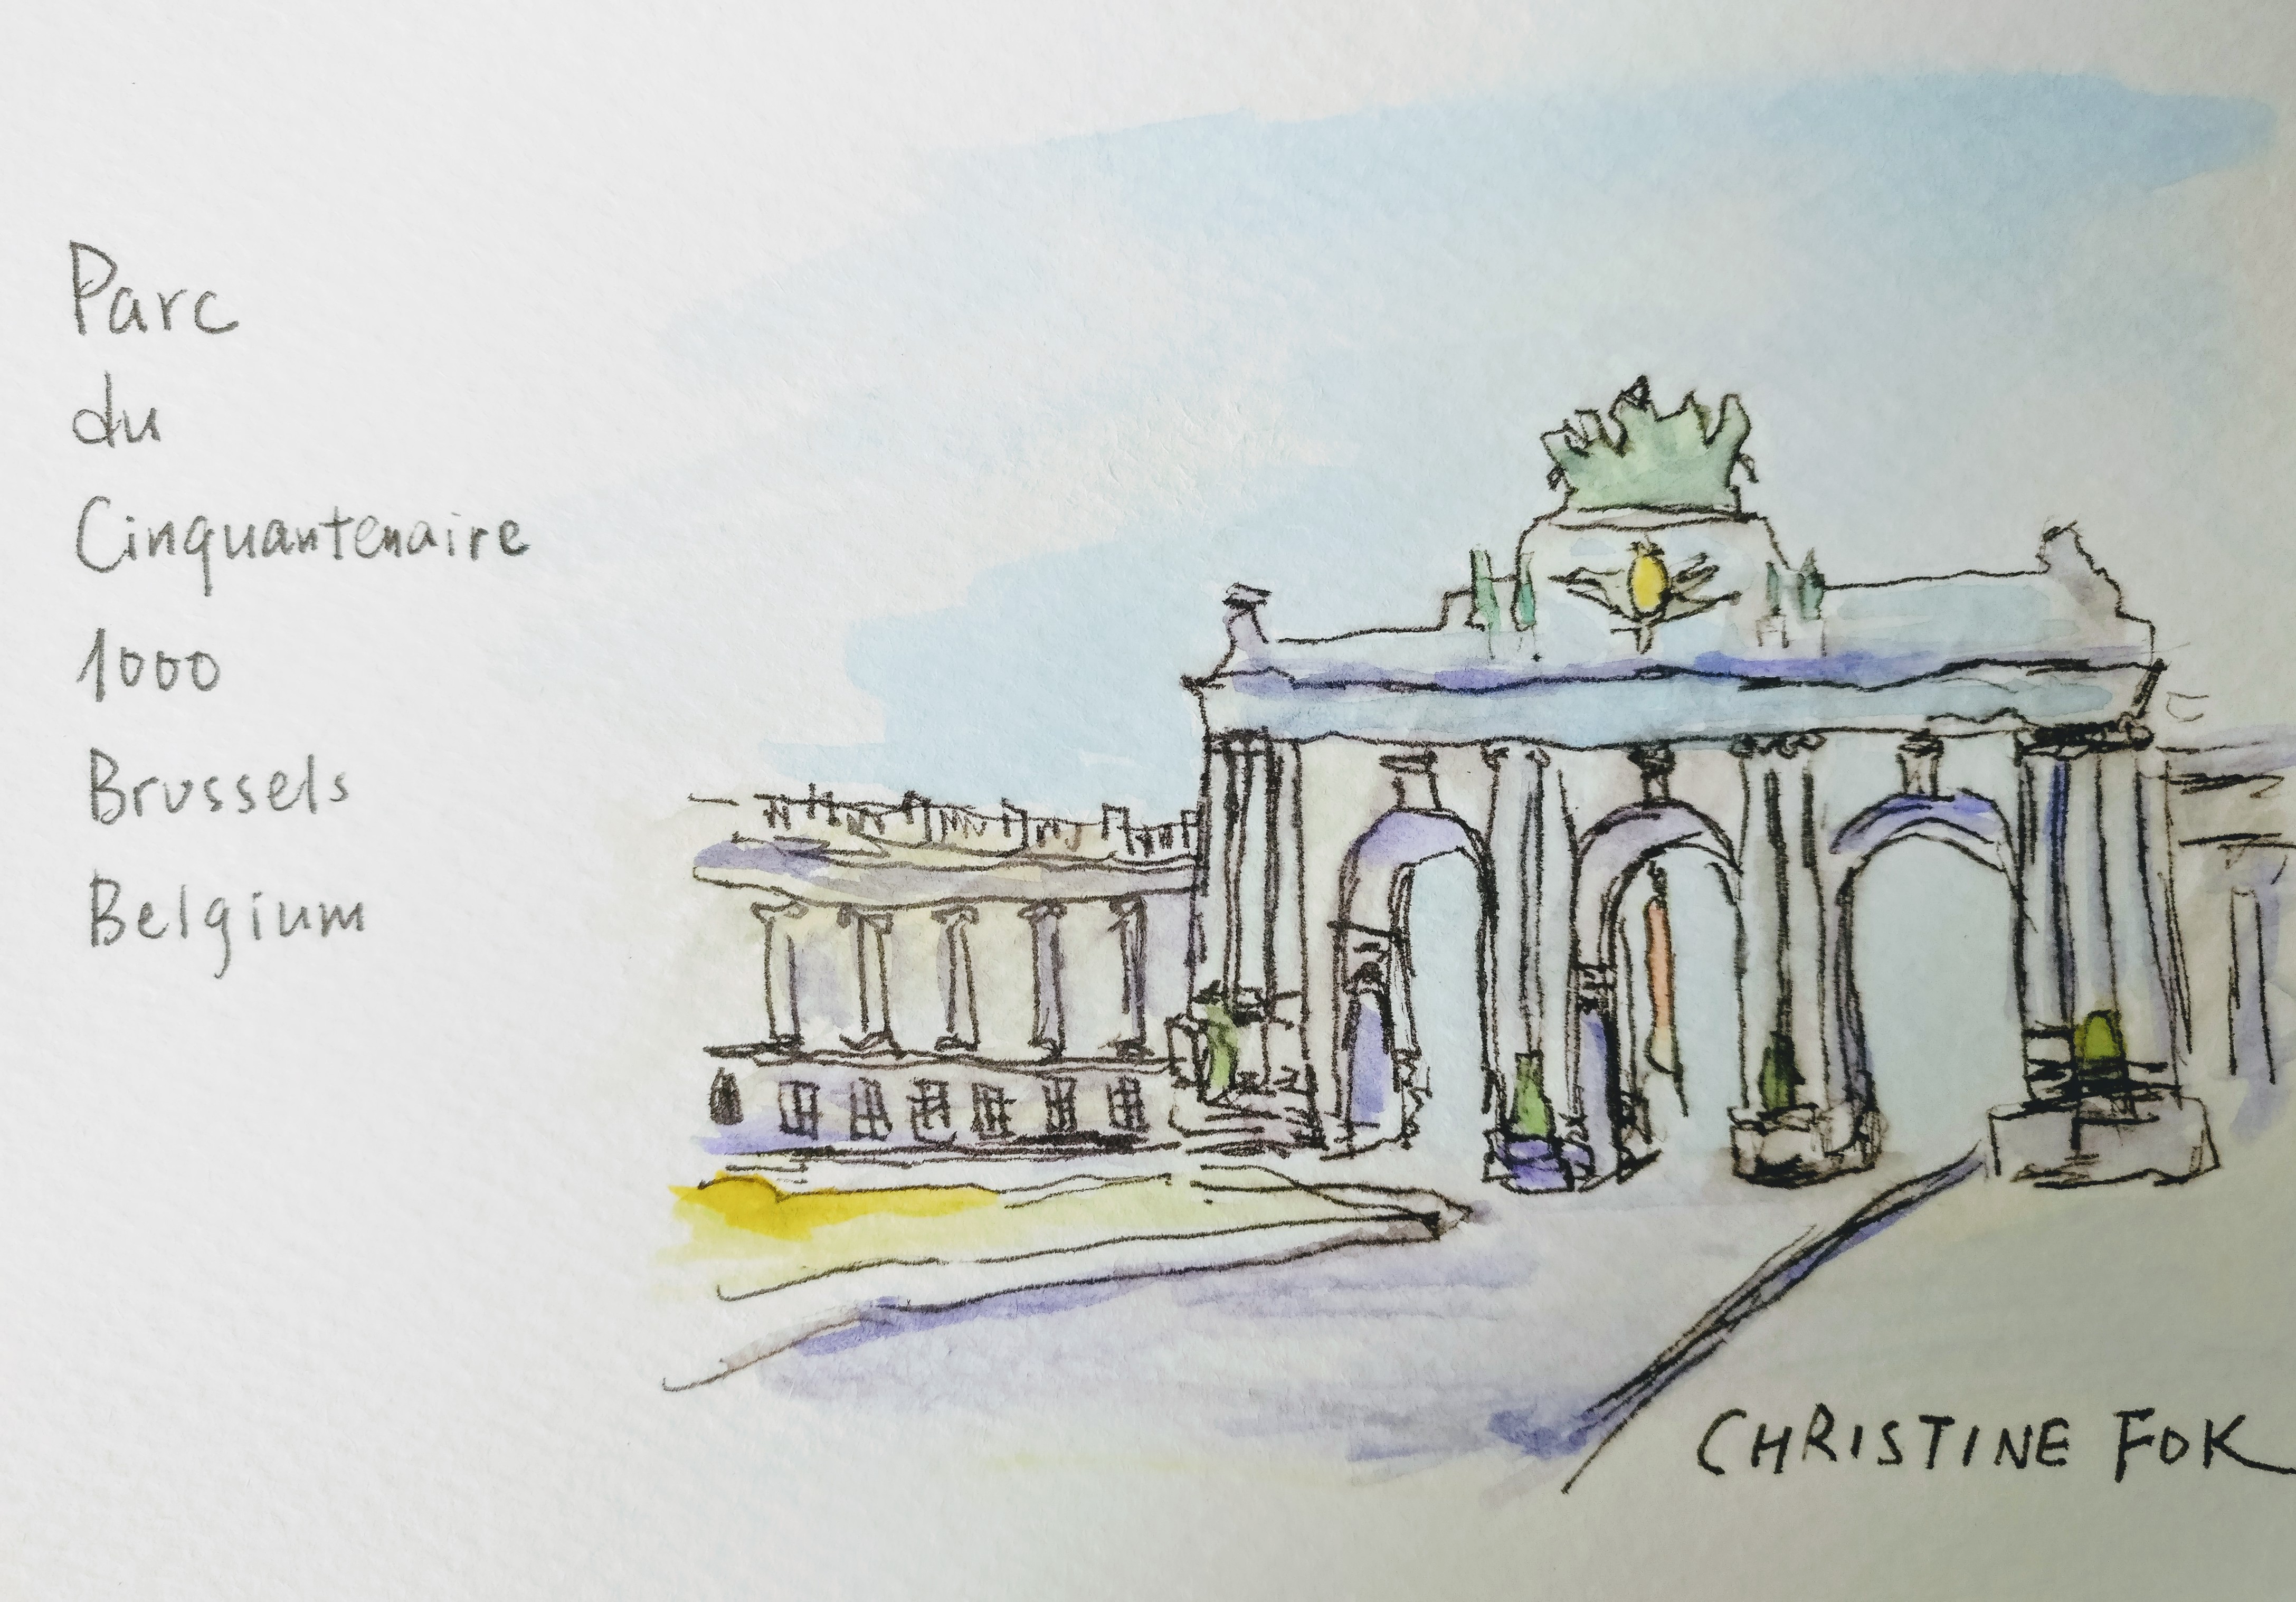 Parc
du
Cinquantenaire
1000
Brussels
Belgium
CHRISTINE FOK